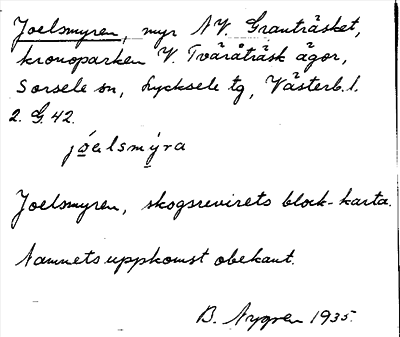 Joelsmyren, myr NV. Granträsket,
kronoparken V. Tväråträsk ägor,
Sorsele sn, Lycksele tg, Västerb. l.
2. G. 42.
jóelsmýra
Joelsmyren, skogsrevirets block-karta.
Namnets uppkomst obekant.
B. Nygren 1935.